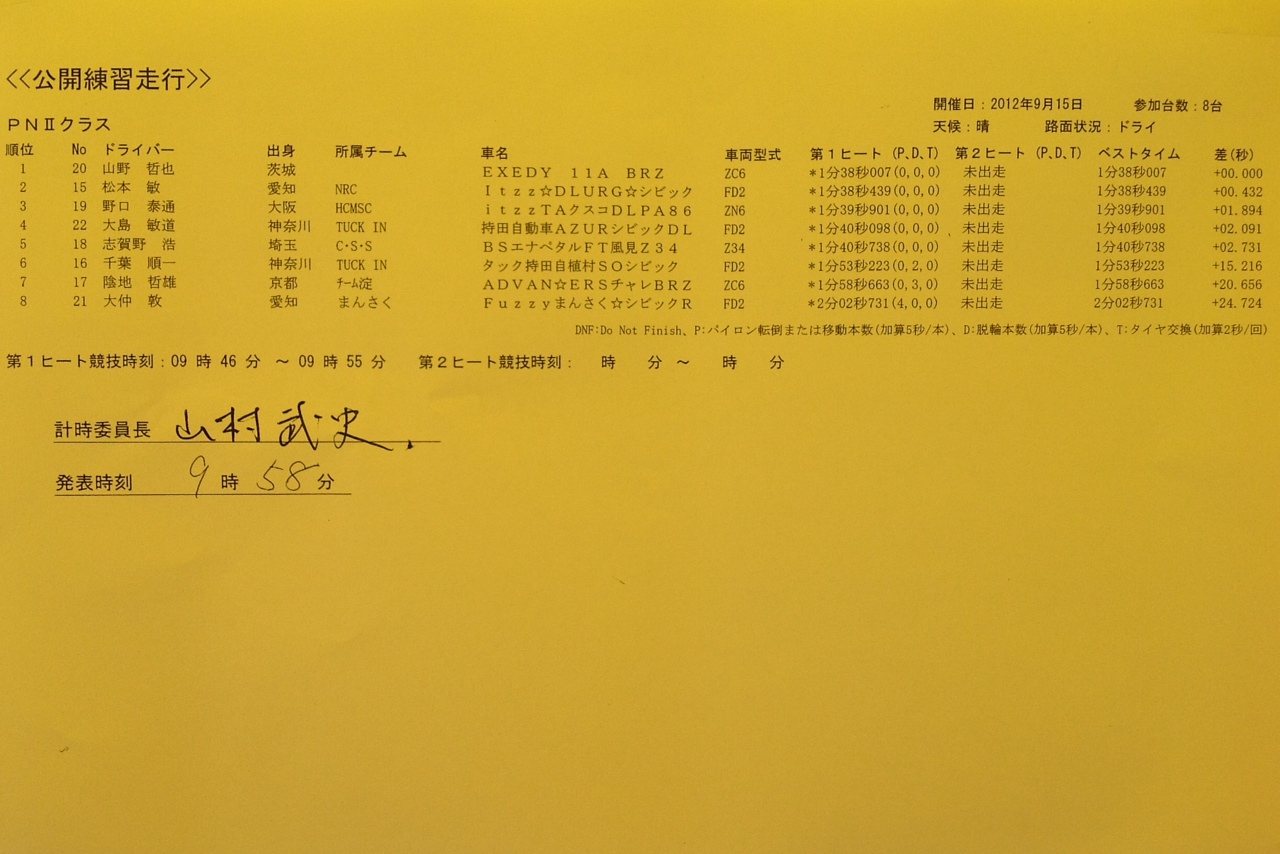 <<公開練習走行>>
開催日：2012年9月15日 参加台数：8台
PNⅡクラス 天候：晴 路面状況：ドライ
順位 No ドライバー 出身 所属チーム 車名 車両型式 第1ヒート (P、D、T) 第2ヒート (P、D、T) ベストタイム 差(秒)
1 20 山野 哲也 茨城 EXEDY 11A BRZ ZC6 *1分38秒007(0,0,0) 未出走 1分38秒007 +00.000
2 15 松本 敏 愛知 NRC Itzz☆DLURG☆シビック FD2 *1分38秒439(0,0,0) 未出走 1分38秒439 +00.432
3 19 野口 泰通 大阪 HCMSC itzzTAクスコDLPA86 ZN6 *1分39秒901(0,0,0) 未出走 1分39秒901 +01.894
4 22 大島 敏道 神奈川 TUCK IN 持田自動車AZURシビックDL FD2 *1分40秒098(0,0,0) 未出走 1分40秒098 +02.091
5 18 志賀野 浩 埼玉 C・S・S BSエナペタルFT風見Z34 Z34 *1分40秒738(0,0,0) 未出走 1分40秒738 +02.731
6 16 千葉 順一 神奈川 TUCK IN タック持田自植村SOシビック FD2 *1分53秒223(0,2,0) 未出走 1分53秒223 +15.216
7 17 陰地 哲雄 京都 ﾁｰﾑ淀 ADVAN☆ERSチャレBRZ ZC6 *1分58秒663(0,3,0) 未出走 1分58秒663 +20.656
8 21 大仲 敦 愛知 まんさく Fuzzyまんさく☆シビックR FD2 *2分02秒731(4,0,0) 未出走 2分02秒731 +24.724
DNF:Do Not Finish、P:パイロン転倒または移動本数(加算5秒/本)、D:脱輪本数(加算5秒/本)、T:タイヤ交換(加算2秒/回)
第1ヒート競技時刻：09 時 46 分 ～ 09 時 55 分 第2ヒート競技時刻： 時 分 ～ 時 分
計時委員長 山村 武史.
発表時刻 9 時 58 分